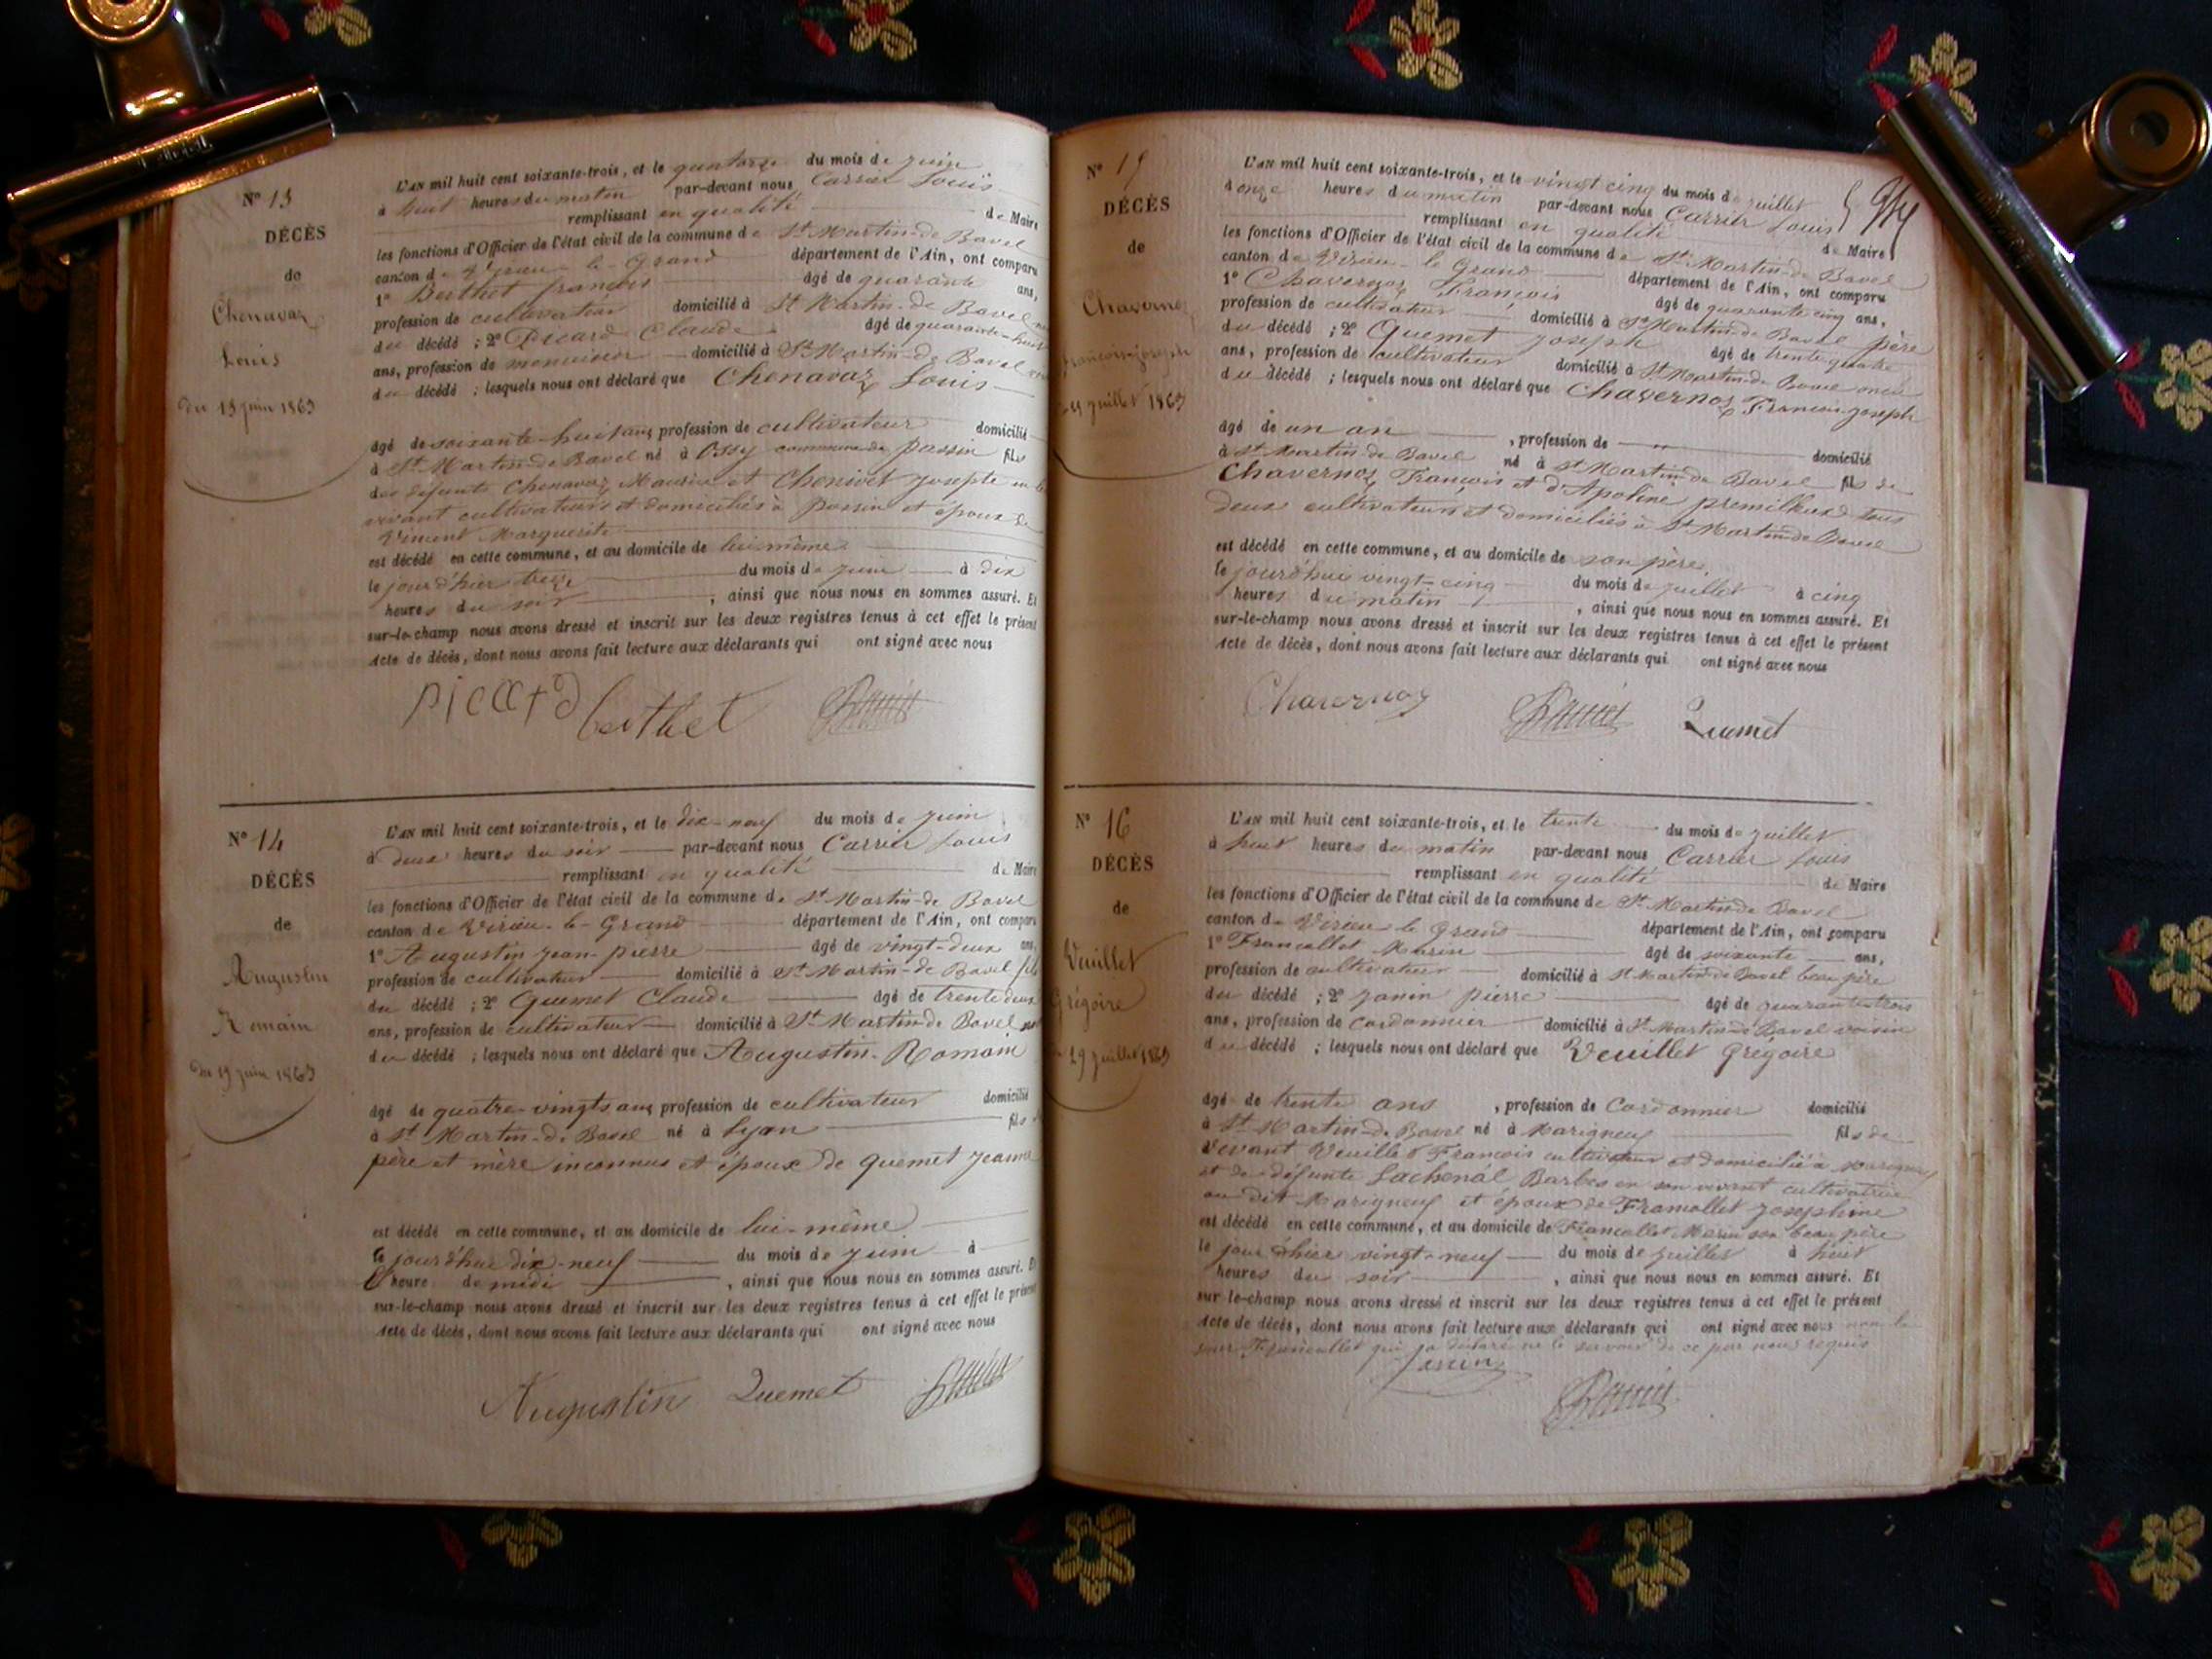 N° 13
DÉCÈS
de
Chenavaz
Louis
du 13 juin 1863
L'an mil huit cent soixante-trois, et le quatorze du mois de juin
à huit heures du matin par-devant nous Carrier Louis
remplissant en qualité de Maire
les fonctions d'Officier de l'état civil de la commune de St Martin-de Bavel
canton de Virieu-le-Grand département de l'Ain, ont comparu
1° Berthet françois âgé de quarante ans,
profession de cultivateur domicilié à St Martin-de Bavel
du décédé ; 2° Picard Claude âgé de quarante-huit
ans, profession de menuisier domicilié à St Martin-de Bavel
du décédé ; lesquels nous ont déclaré que Chenavaz Louis
âgé de soixante-huit ans profession de cultivateur domicilié
à St Martin-de Bavel né à Ossy commune de passin fils
des défunts Chenavaz Maurice et Chenivet Josephte en leur
vivant cultivateurs et domiciliés à passin et époux de
Vincent Marguerite
est décédé en cette commune, et au domicile de lui-même
le jourd'hier treize du mois de juin à dix
heures du soir, ainsi que nous nous en sommes assuré. Et
sur-le-champ nous avons dressé et inscrit sur les deux registres tenus à cet effet le présent
Acte de décès, dont nous avons fait lecture aux déclarants qui ont signé avec nous
picard berthet
N° 14
DÉCÈS
de
Augustin
Romain
du 19 juin 1863
L'an mil huit cent soixante-trois, et le dix-neuf du mois de juin
à deux heures du soir par-devant nous Carrier Louis
remplissant en qualité de Maire
les fonctions d'Officier de l'état civil de la commune de St Martin-de Bavel
canton de Virieu-le-Grand département de l'Ain, ont comparu
1° Augustin jean-pierre âgé de vingt-deux ans,
profession de cultivateur domicilié à St Martin-de Bavel fils
du décédé ; 2° Quemet Claude âgé de trente deux
ans, profession de cultivateur domicilié à St Martin-de Bavel
du décédé ; lesquels nous ont déclaré que Augustin-Romain
âgé de quatre-vingts ans profession de cultivateur domicilié
à St Martin-de Bavel né à Lyon fils
père et mère inconnus et époux de quemet jeanne
est décédé en cette commune, et au domicile de lui-même
le jourd'hui dix-neuf du mois de juin à
heure de midi, ainsi que nous nous en sommes assuré. Et
sur-le-champ nous avons dressé et inscrit sur les deux registres tenus à cet effet le présent
Acte de décès, dont nous avons fait lecture aux déclarants qui ont signé avec nous
Augustin Quemet
N° 15
DÉCÈS
de
Chavernoz
françois-joseph
25 juillet 1863
L'an mil huit cent soixante-trois, et le vingt cinq du mois de juillet
à onze heures du matin par-devant nous Carrier Louis
remplissant en qualité de Maire
les fonctions d'Officier de l'état civil de la commune de St Martin-de Bavel
canton de Virieu-le Grand département de l'Ain, ont comparu
1° Chavernoz François âgé de quarante cinq ans,
profession de cultivateur domicilié à St Martin-de Bavel père
du décédé ; 2° Quemet joseph âgé de trente quatre
ans, profession de cultivateur domicilié à St Martin-de Bavel oncle
du décédé ; lesquels nous ont déclaré que Chavernoz François-joseph
âgé de un an, profession de domicilié
à St Martin-de Bavel né à St Martin-de Bavel fils de
Chavernoz François et d'Apoline premilleux tous
deux cultivateurs et domiciliés à St Martin-de Bavel
est décédé en cette commune, et au domicile de son père
le jourd'hui vingt-cinq du mois de juillet à cinq
heures du matin, ainsi que nous nous en sommes assuré. Et
sur-le-champ nous avons dressé et inscrit sur les deux registres tenus à cet effet le présent
Acte de décès, dont nous avons fait lecture aux déclarants qui ont signé avec nous
Chavernoz Quemet
N° 16
DÉCÈS
de
Veuillet
Grégoire
29 juillet 1863
L'an mil huit cent soixante-trois, et le trente du mois de juillet
à huit heures du matin par-devant nous Carrier Louis
remplissant en qualité de Maire
les fonctions d'Officier de l'état civil de la commune de St Martin-de Bavel
canton de Virieu-le Grand département de l'Ain, ont comparu
1° Francallet Marin âgé de soixante ans,
profession de cultivateur domicilié à St Martin-de Bavel beau père
du décédé ; 2° Janin pierre âgé de quarante-trois
ans, profession de cordonnier domicilié à St Martin-de Bavel voisin
du décédé ; lesquels nous ont déclaré que Veuillet Grégoire
âgé de trente ans, profession de Cordonnier domicilié
à St Martin-de Bavel né à Marigneux fils de
vivant Veuillet François cultivateur et domicilié à
et de défunte Lachenal Barbe en son vivant cultivatrice
au dit et époux de Francallet josephine
est décédé en cette commune, et au domicile de Francallet Marin son beau père
le jour d'hier vingt-neuf du mois de juillet à huit
heures du soir, ainsi que nous nous en sommes assuré. Et
sur-le-champ nous avons dressé et inscrit sur les deux registres tenus à cet effet le présent
Acte de décès, dont nous avons fait lecture aux déclarants qui ont signé avec nous non le
sieur Francallet qui a déclaré ne le savoir de ce par nous requis
Janin